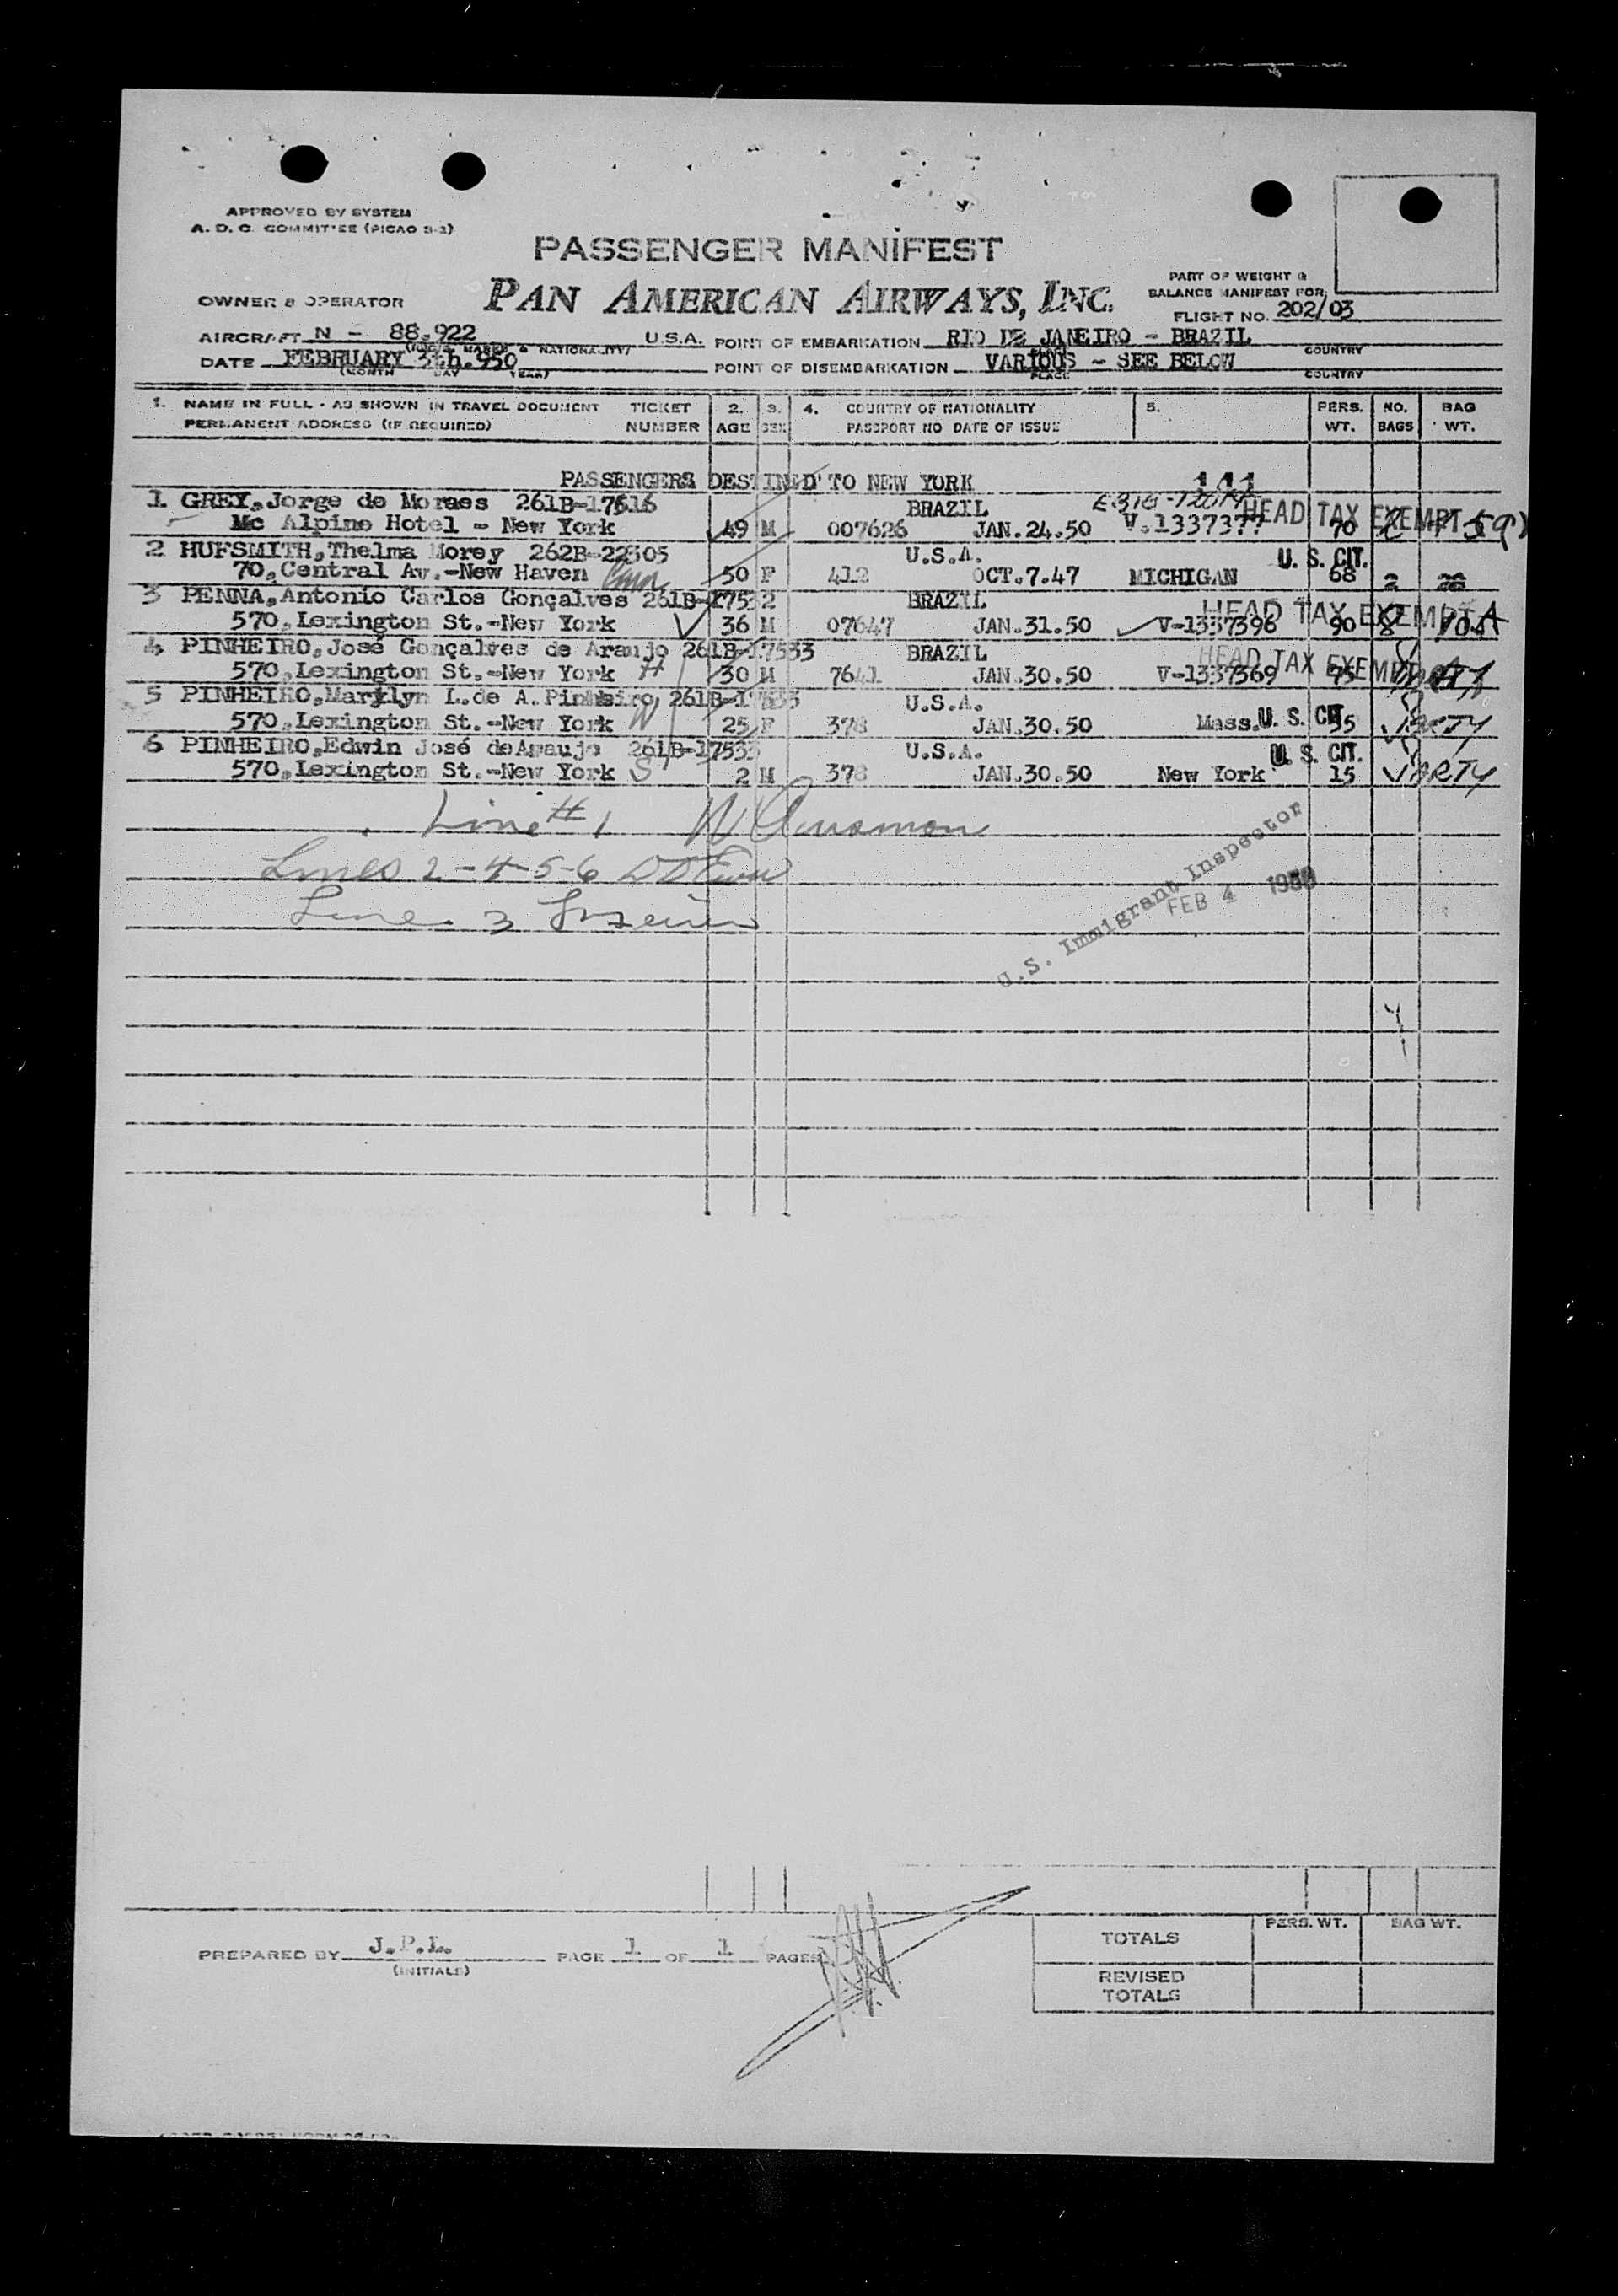 APPROVED BY SYSTEM
A. D. C. COMMITTEE (PICAO S-2)
PASSENGER MANIFEST
PAN AMERICAN AIRWAYS, INC.
PART OF WEIGHT &
BALANCE MANIFEST FOR
FLIGHT NO. 202/03
OWNER & OPERATOR
AIRCRAFT N - 88.922 U.S.A. POINT OF EMBARKATION RIO DE JANEIRO - BRAZIL
MARKS & NATIONALITY) COUNTRY
DATE FEBRUARY POINT OF DISEMBARKATION VARIOUS - SEE BELOW
(MONTH DAY YEAR) PLACE COUNTRY
1. NAME IN FULL - AS SHOWN IN TRAVEL DOCUMENT TICKET 2. 3. 4. COUNTRY OF NATIONALITY 5. PERS. NO. BAG
PERMANENT ADDRESS (IF REQUIRED) NUMBER AGE SEX PASSPORT NO DATE OF ISSUE WT. BAGS WT.
PASSENGERS DESTINED TO NEW YORK 141
1 GREY,Jorge de Moraes 261B-17516 BRAZIL HEAD TAX EXEMPT
Mc Alpine Hotel - New York 49 M 007626 JAN.24.50 V.1337377 70
2 HUFSMITH,Thelma Morey 262B-22305 U.S.A. U. S. CIT.
70,Central Av.-New Haven Conn 50 F 412 OCT.7.47 MICHIGAN 68 2
3 PENNA,Antonio Carlos Gonçalves 261B-17532 BRAZIL HEAD TAX EXEMPT
570,Lexington St.-New York 36 M 07647 JAN.31.50 V-1337396 90
4 PINHEIRO,José Gonçalves de Araujo 261B-17533 BRAZIL HEAD TAX EXEMPT
570,Lexington St.-New York H 30 M 7641 JAN.30.50 V-1337369 75
5 PINHEIRO,Marylyn L.de A.Pinheiro 261B-17533 U.S.A.
570,Lexington St.-New York W 25 F 378 JAN.30.50 Mass. U. S. CIT. 55 PARTY
6 PINHEIRO,Edwin José deAraujo 261B-17533 U.S.A. U. S. CIT.
570,Lexington St.-New York S 2 M 378 JAN.30.50 New York 15 PARTY
Line # 1
Lines 2-4-5-6
Line 3
U.S. Immigrant Inspector
FEB 4 1950
PREPARED BY J.P.L. PAGE 1 OF 1 PAGES
(INITIALS)
PERS. WT. BAG WT.
TOTALS
REVISED
TOTALS